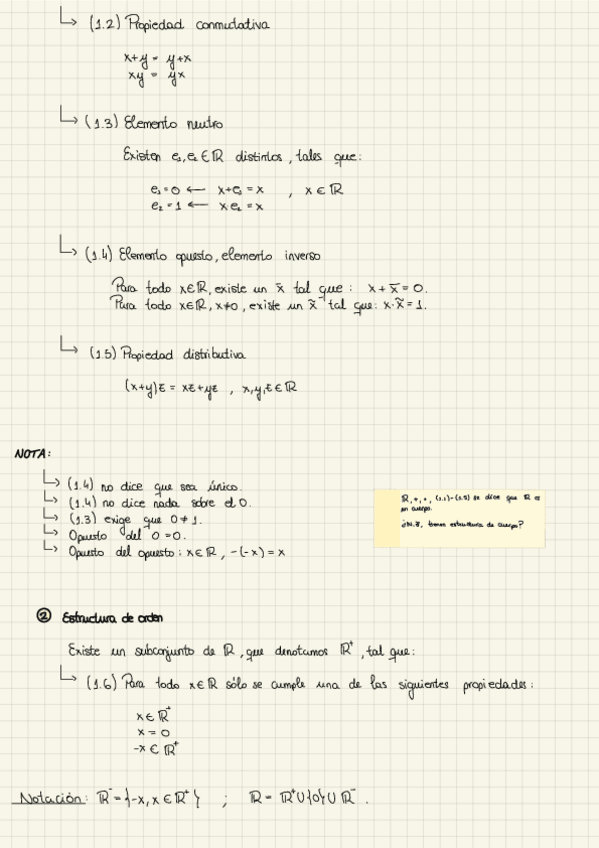 (1.2) Propiedad conmutativa
x+y = y+x
xy = yx
(1.3) Elemento neutro
Existen e₁, e₂ ∈ ℝ distintos, tales que:
e₁ = 0 ← x+e₁ = x , x ∈ ℝ
e₂ = 1 ← x·e₂ = x
(1.4) Elemento opuesto, elemento inverso
Para todo x∈ℝ, existe un x̄ tal que : x + x̄ = 0.
Para todo x∈ℝ, x≠0, existe un x̃ tal que: x·x̃ = 1.
(1.5) Propiedad distributiva
(x+y)z = xz+yz , x,y,z ∈ ℝ
NOTA:
(1.4) no dice que sea único.
(1.4) no dice nada sobre el 0.
(1.3) exige que 0 ≠ 1.
Opuesto del 0 = 0.
Opuesto del opuesto : x∈ℝ, -(-x) = x
ℝ, +, ·, (1.1)-(1.5) se dice que ℝ es
un cuerpo.
¿ℕ, ℤ, tienen estructura de cuerpo?
② Estructura de orden
Existe un subconjunto de ℝ, que denotamos ℝ⁺, tal que:
(1.6) Para todo x∈ℝ sólo se cumple una de las siguientes propiedades:
x ∈ ℝ⁺
x = 0
-x ∈ ℝ⁺
Notación: ℝ⁻ = {-x, x ∈ ℝ⁺} ; ℝ = ℝ⁺∪{0}∪ℝ⁻.